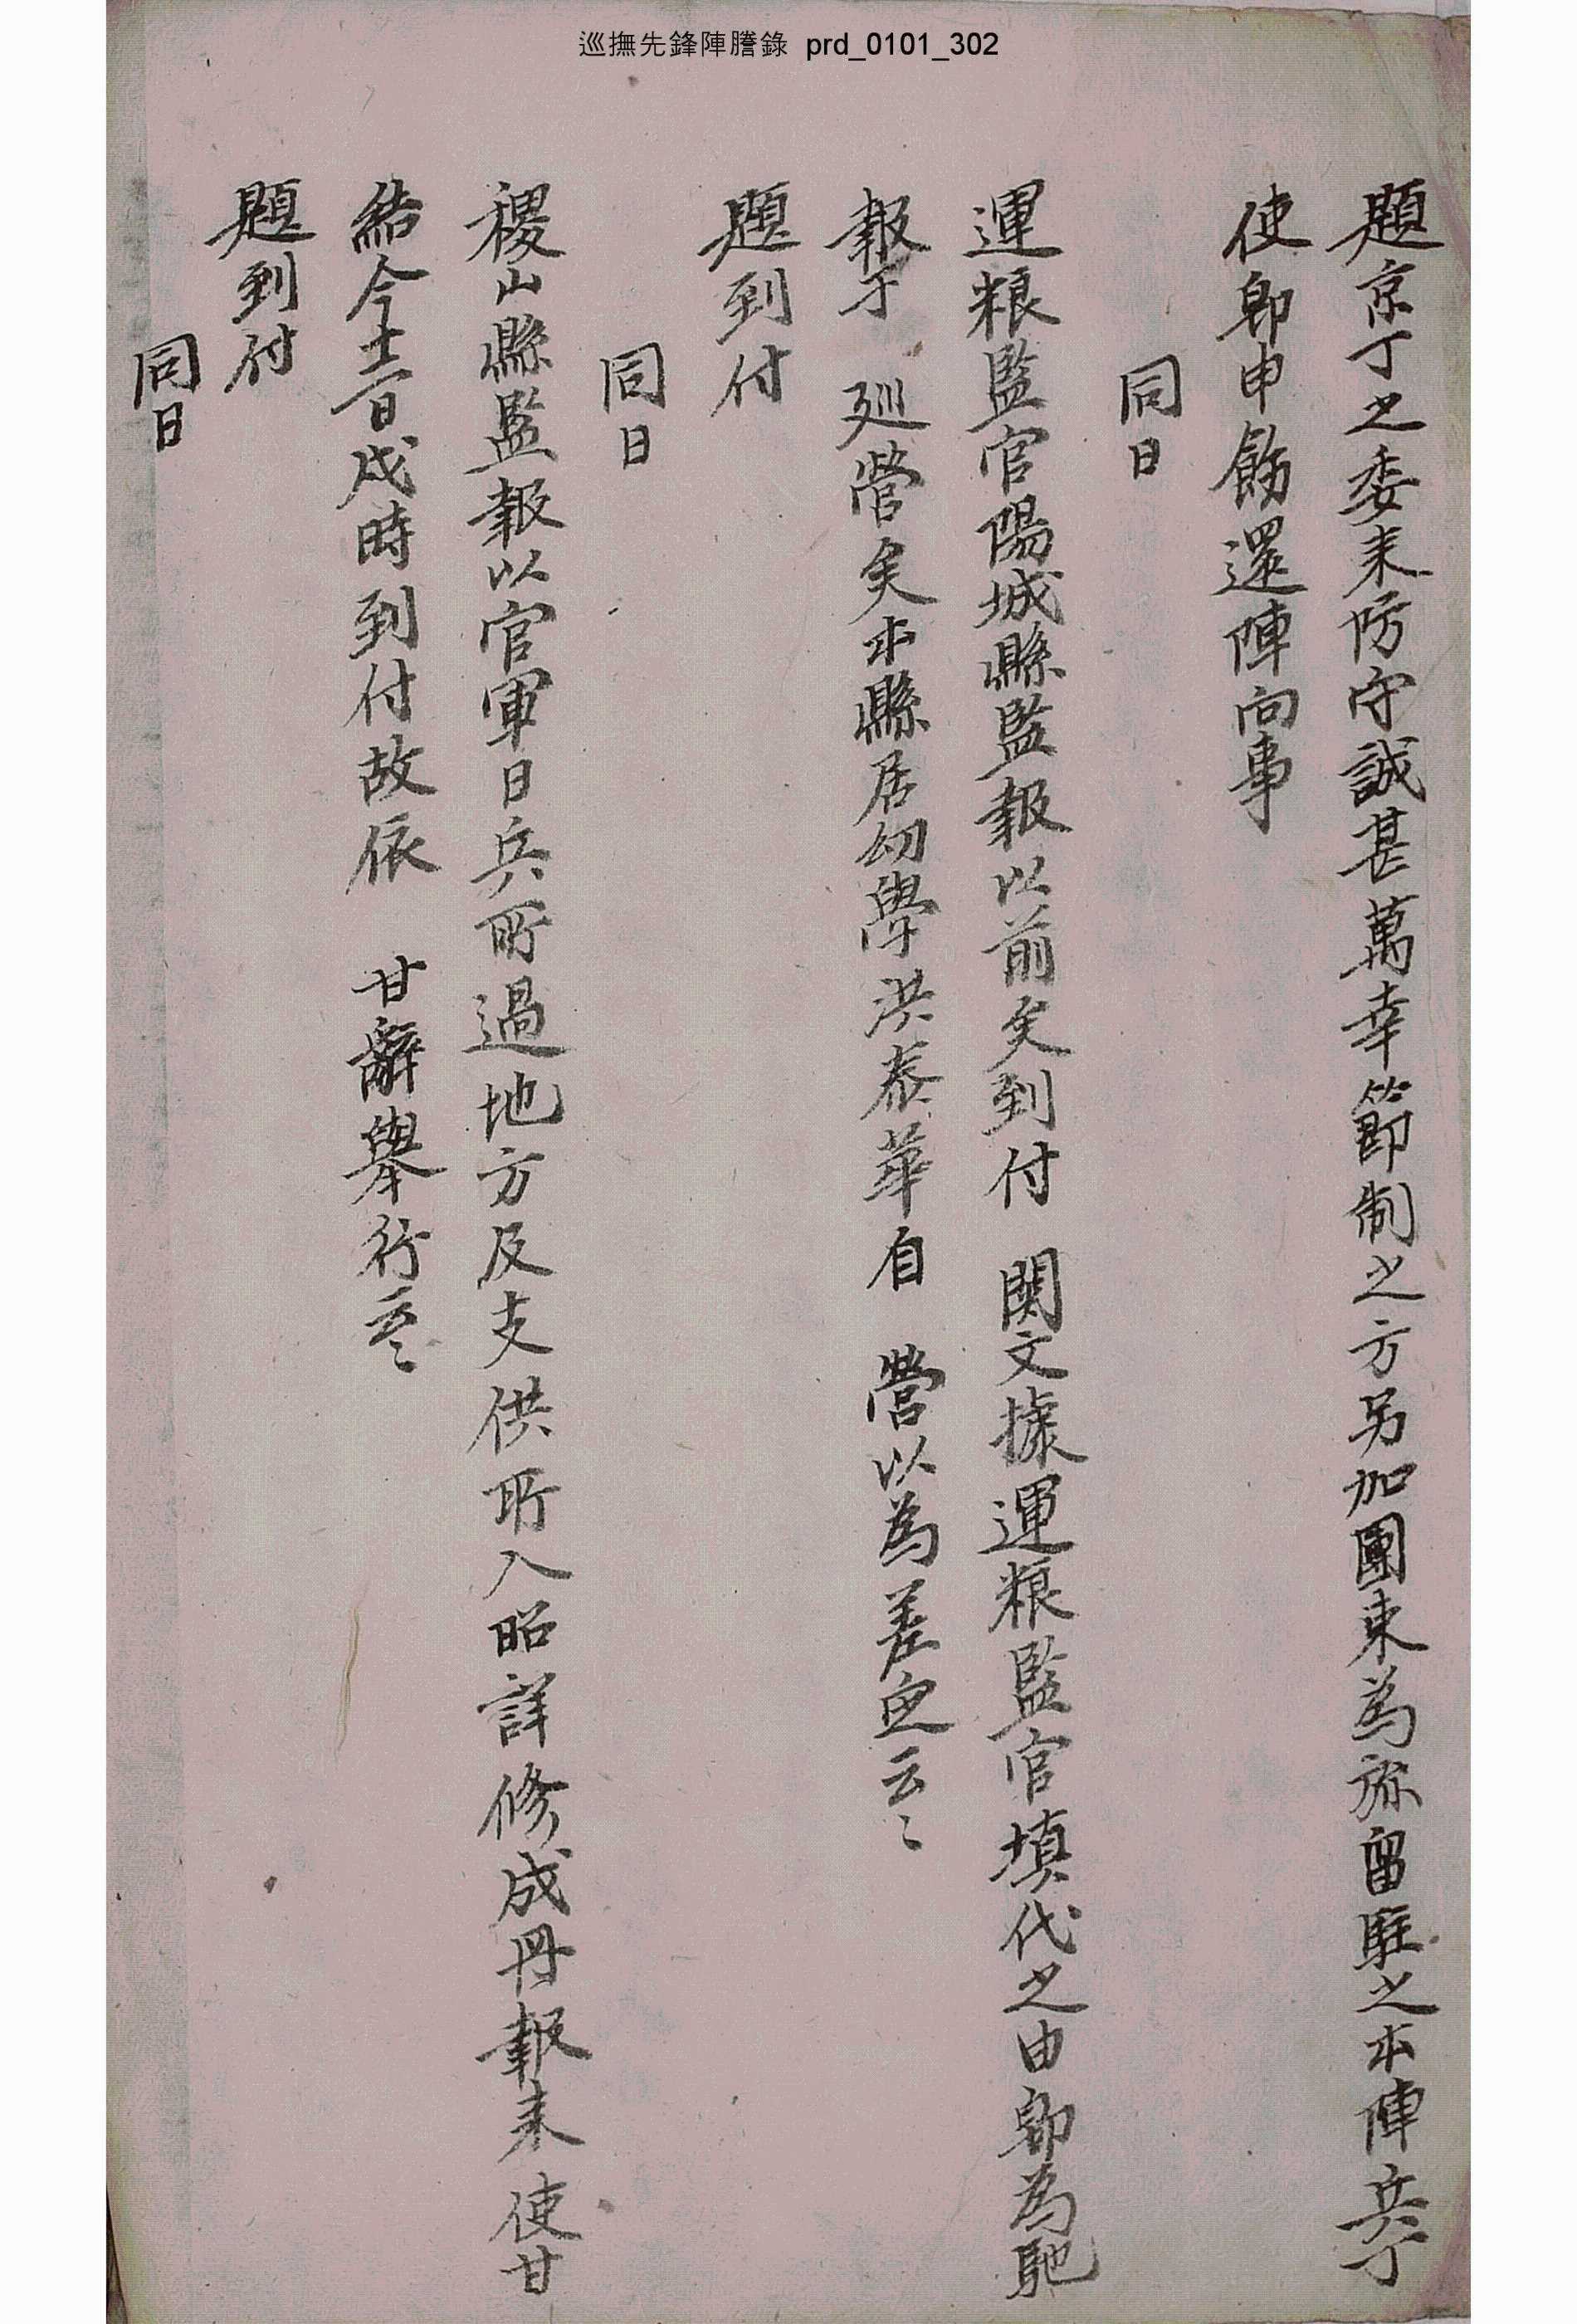 巡撫先鋒陣謄錄 prd_0101_302
題京丁之委来防守誠甚萬幸節制之方另加團束為旀留駐之本陣兵丁
使卽申飭還陣向事
同日
運粮監官陽城縣監報以前矣到付 関文據運粮監官塡代之由卽為馳
報于 廵營矣本縣居幼學洪泰華自 營以為差出云〻
題到付
同日
稷山縣監報以官軍日兵所過地方及支供所入昭詳修成冊報来使甘
結今十二日戌時到付故依 甘辭擧行云〻
題到付
同日